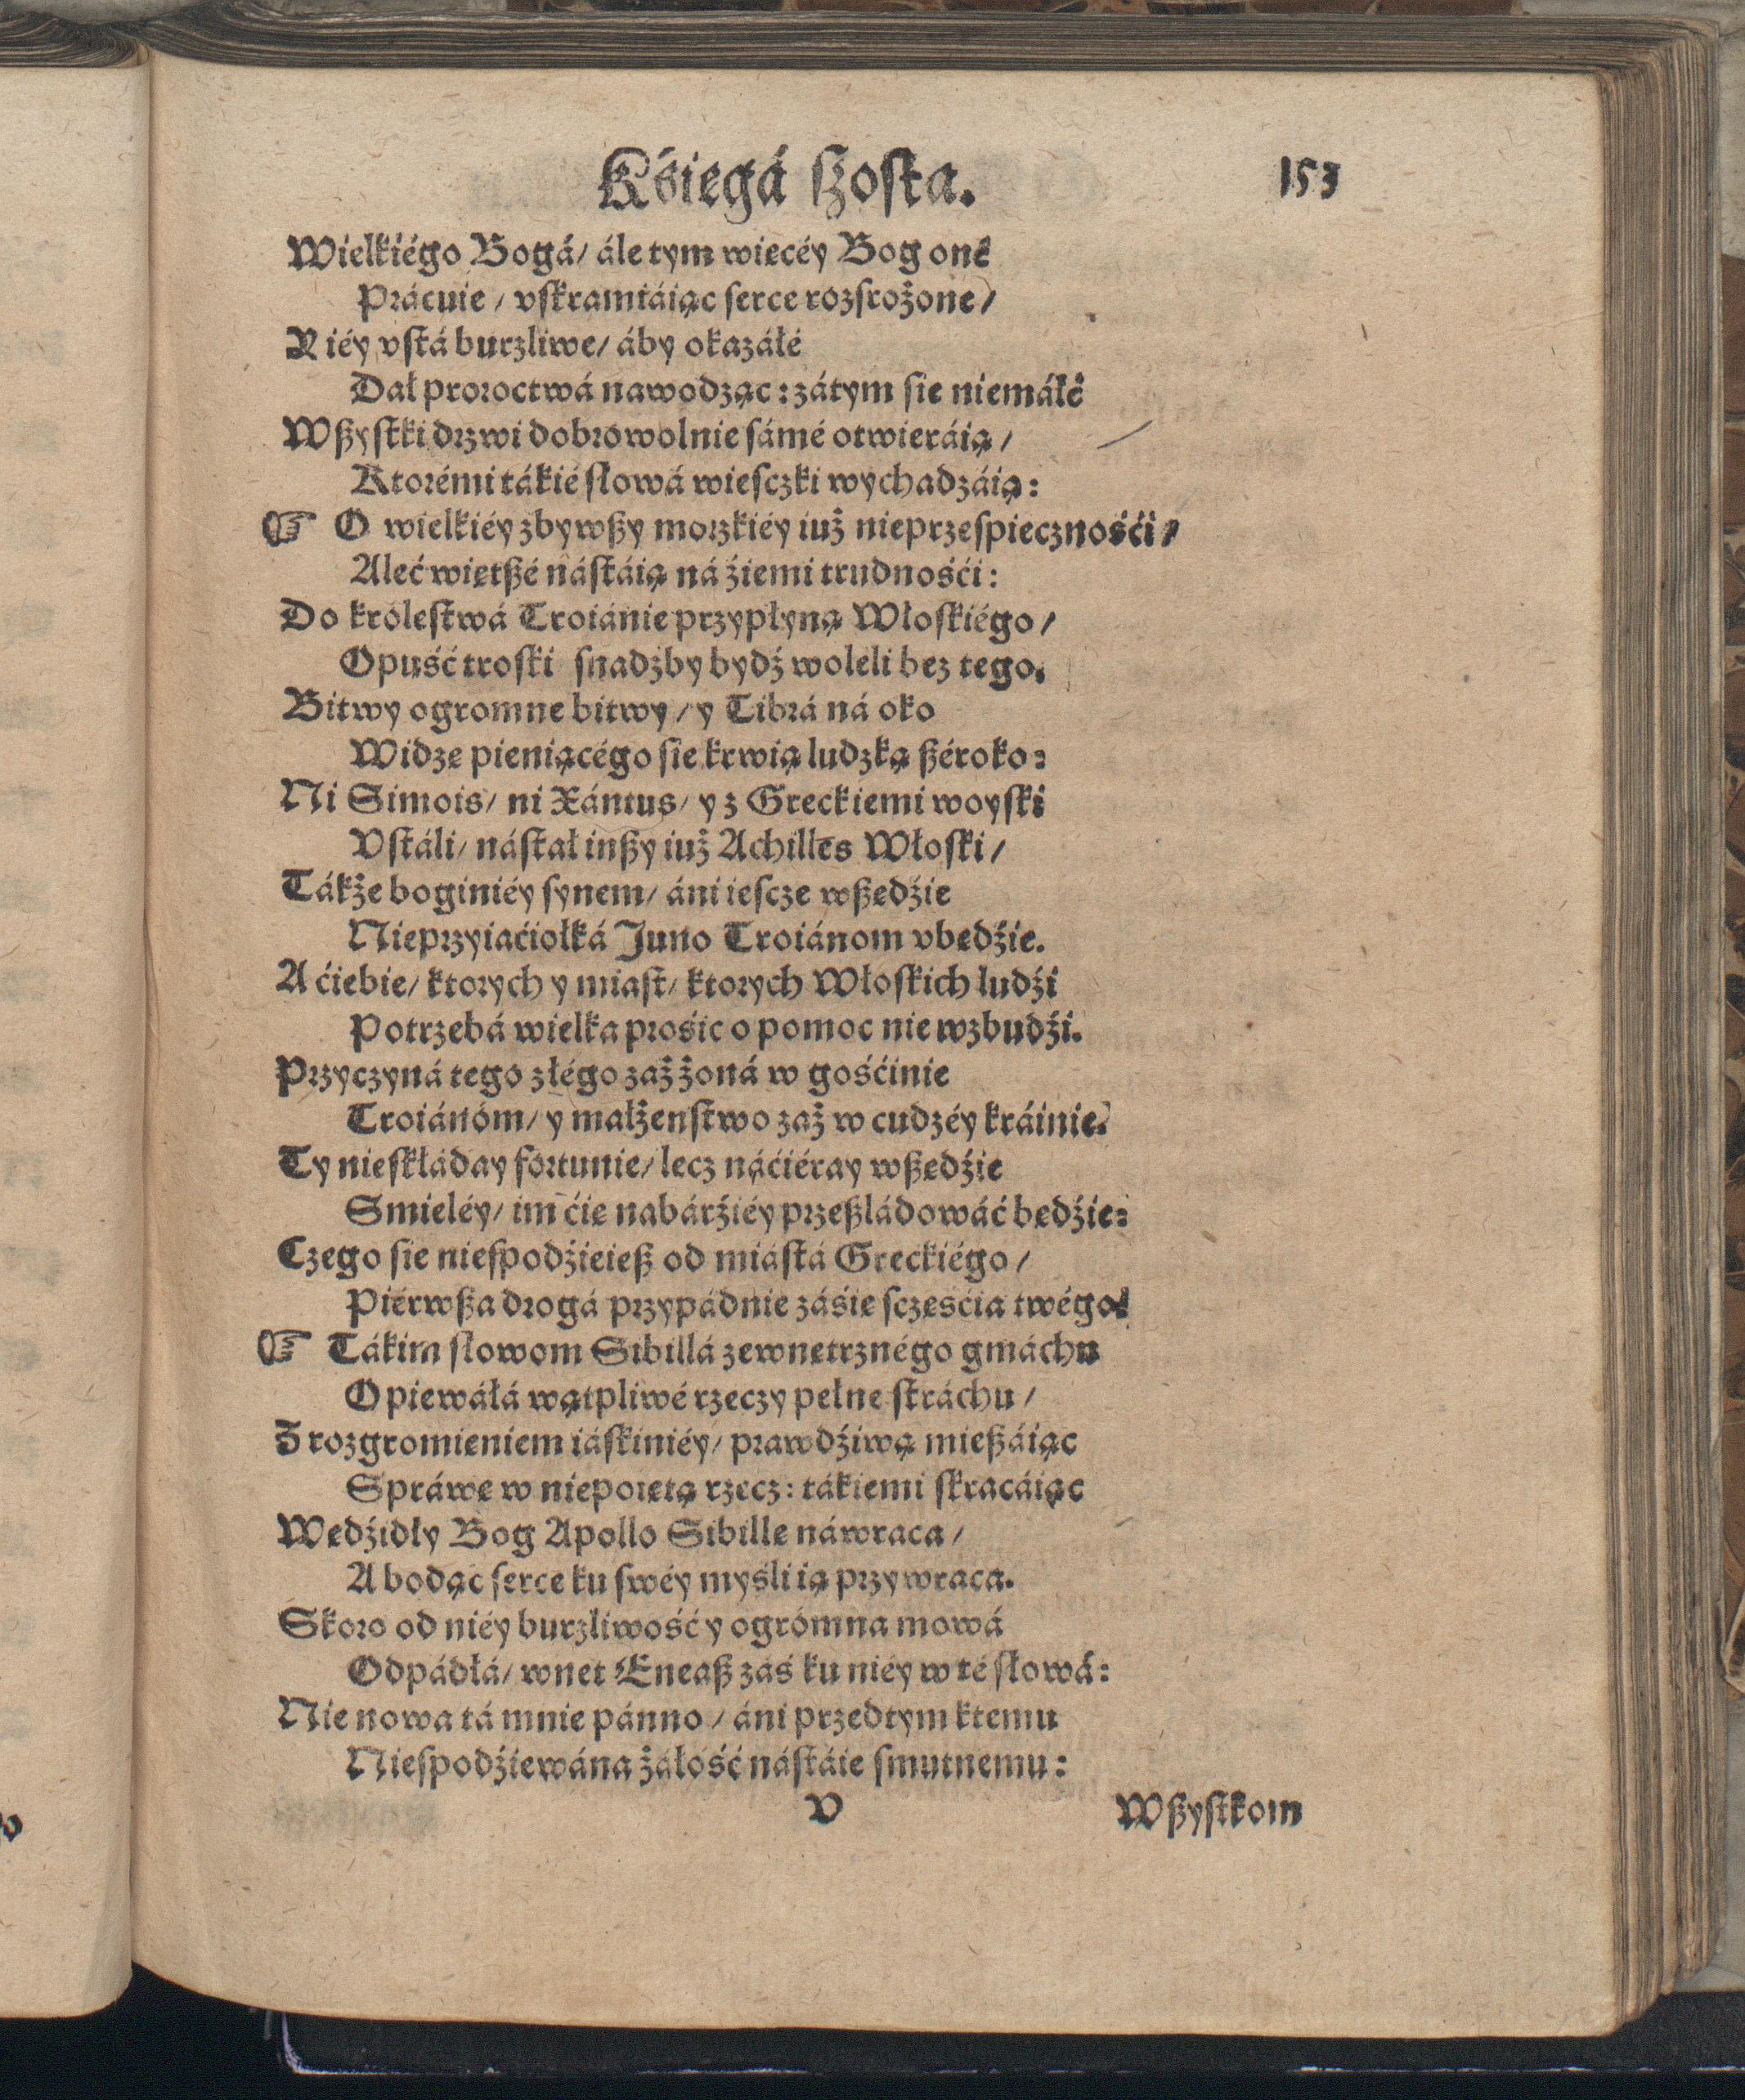 Kśięgá ſzoſta. 153
Wielkiégo Bogá/ ále tym więcéy Bog onę
Prácuie/ vſkramiáiąc ſerce rozſrożone/
Y iéy vſtá burzliwe/ áby okazáłé
Dał proroctwá nawodząc: zátym ſie niemáłé
Wßyſtki drzwi dobrowolnie ſámé otwieráią/
Ktorémi tákié ſłowá wieſczki wychadzáią:
☞ O wielkiéy zbywßy morzkiéy iuż nieprzeſpiecznośći/
Aleć więtßé náſtáią ná źiemi trudnośći:
Do króleſtwá Troiánie przypłyną Włoſkiégo/
Opuść troſki ſnadźby bydź woleli bez tego.
Bitwy ogromne bitwy/ y Tibrá ná oko
Widzę pieniącégo ſie krwią ludzką ßéroko:
Ni Simois/ ni Xántus/ y z Greckiemi woyſki
Vſtáli/ náſtał inßy iuż Achilles Włoſki/
Tákże boginiéy ſynem/ áni ieſcze wßędźie
Nieprzyiaćiołká Juno Troiánom vbędźie.
A ćiebie/ ktorych y miaſt/ ktorych Włoſkich ludźi
Potrzebá wielka prośic o pomoc nie wzbudźi.
Przyczyná tego złégo zaż żoná w gośćinie
Troiánóm/ y małżenſtwo zaż w cudzéy kráinie.
Ty nieſkłáday fortunie/ lecz náćiéray wßędźie
Smieléy/ im ćię nabárźiéy przeßládowáć będźie:
Czego ſie nieſpodźieieß od miáſtá Greckiégo/
Piérwßa drogá przypádnie záśie ſczęśćia twégo.
☞ Tákim ſłowom Sibillá zewnętrznégo gmáchu
Opiewáłá wątpliwé rzeczy pełne ſtráchu/
Z rozgromieniem iáſkiniéy/ prawdźiwą mießáiąc
Spráwę w niepoiętą rzecz: tákiemi ſkracáiąc
Wędźidły Bog Apollo Sibillę náwraca/
A bodąc ſerce ku ſwéy myśli ią przywraca.
Skoro od niéy burzliwość y ogrómna mowá
Odpádłá/ wnet Eneaß záś ku niéy w té ſłowá:
Nie nowa tá mnie pánno/ áni przedtym ktemu
Nieſpodźiewána żáłość náſtáie ſmutnemu:
V Wßyſtkom